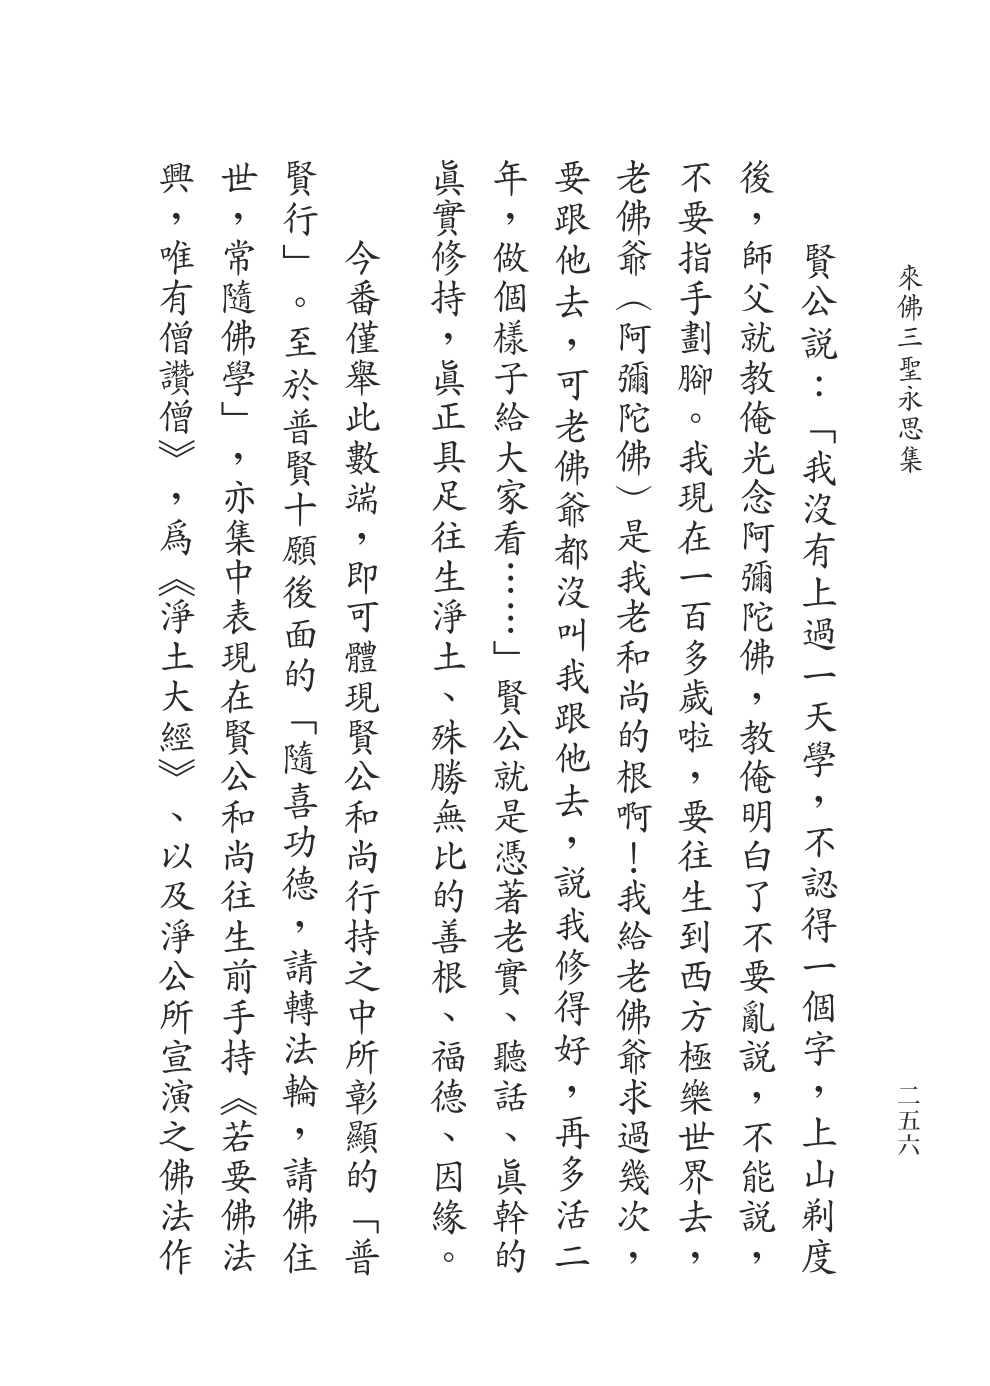 來佛三聖永思集
二五六
賢公説：「我沒有上過一天學，不認得一個字，上山剃度
後，師父就教俺光念阿彌陀佛，教俺明白了不要亂説，不能説，
不要指手劃腳。我現在一百多歲啦，要往生到西方極樂世界去，
老佛爺（阿彌陀佛）是我老和尚的根啊！我給老佛爺求過幾次，
要跟他去，可老佛爺都沒叫我跟他去，説我修得好，再多活二
年，做個樣子給大家看……」賢公就是憑著老實、聽話、眞幹的
眞實修持，眞正具足往生淨土、殊勝無比的善根、福德、因緣。
今番僅舉此數端，即可體現賢公和尚行持之中所彰顯的「普
賢行」。至於普賢十願後面的「隨喜功德，請轉法輪，請佛住
世，常隨佛學」，亦集中表現在賢公和尚往生前手持《若要佛法
興，唯有僧讚僧》，爲《淨土大經》、以及淨公所宣演之佛法作